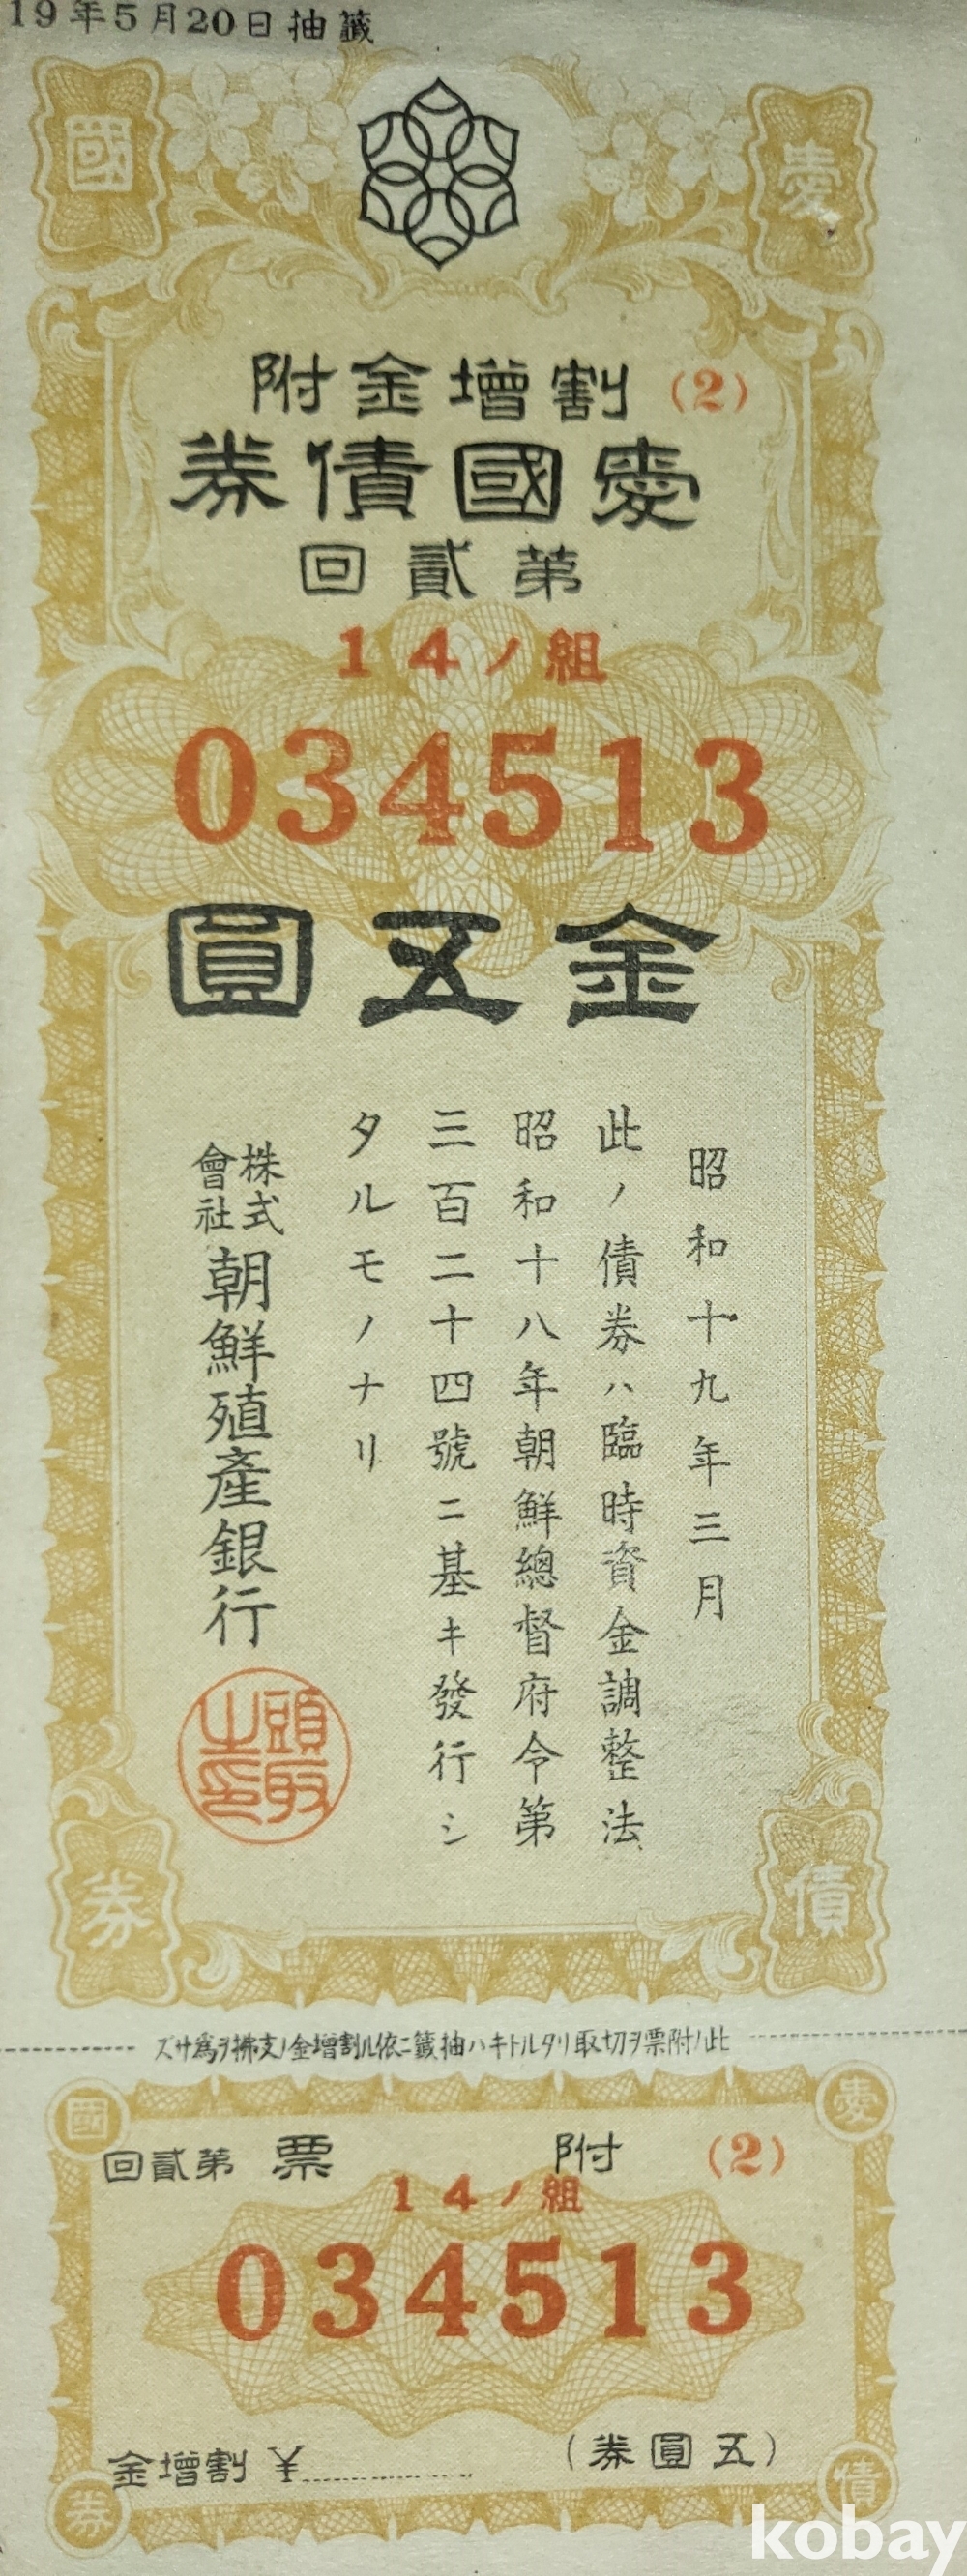 19年5月20日抽籤
國 愛
割增金附 (2)
愛國債券
第貳回
14ノ組
034513
金五圓
昭和十九年三月
此ノ債券ハ臨時資金調整法
昭和十八年朝鮮總督府令第
三百二十四號ニ基キ發行シ
タルモノナリ
株式會社 朝鮮殖産銀行
頭取之印
券 債
此ノ附票ヲ切取リタルトキハ抽籤ニ依ル割增金ノ支拂ヲ爲サズ
國 愛
附票 第貳回 (2)
14ノ組
034513
割增金 ¥
(五圓券)
券 債
kobay